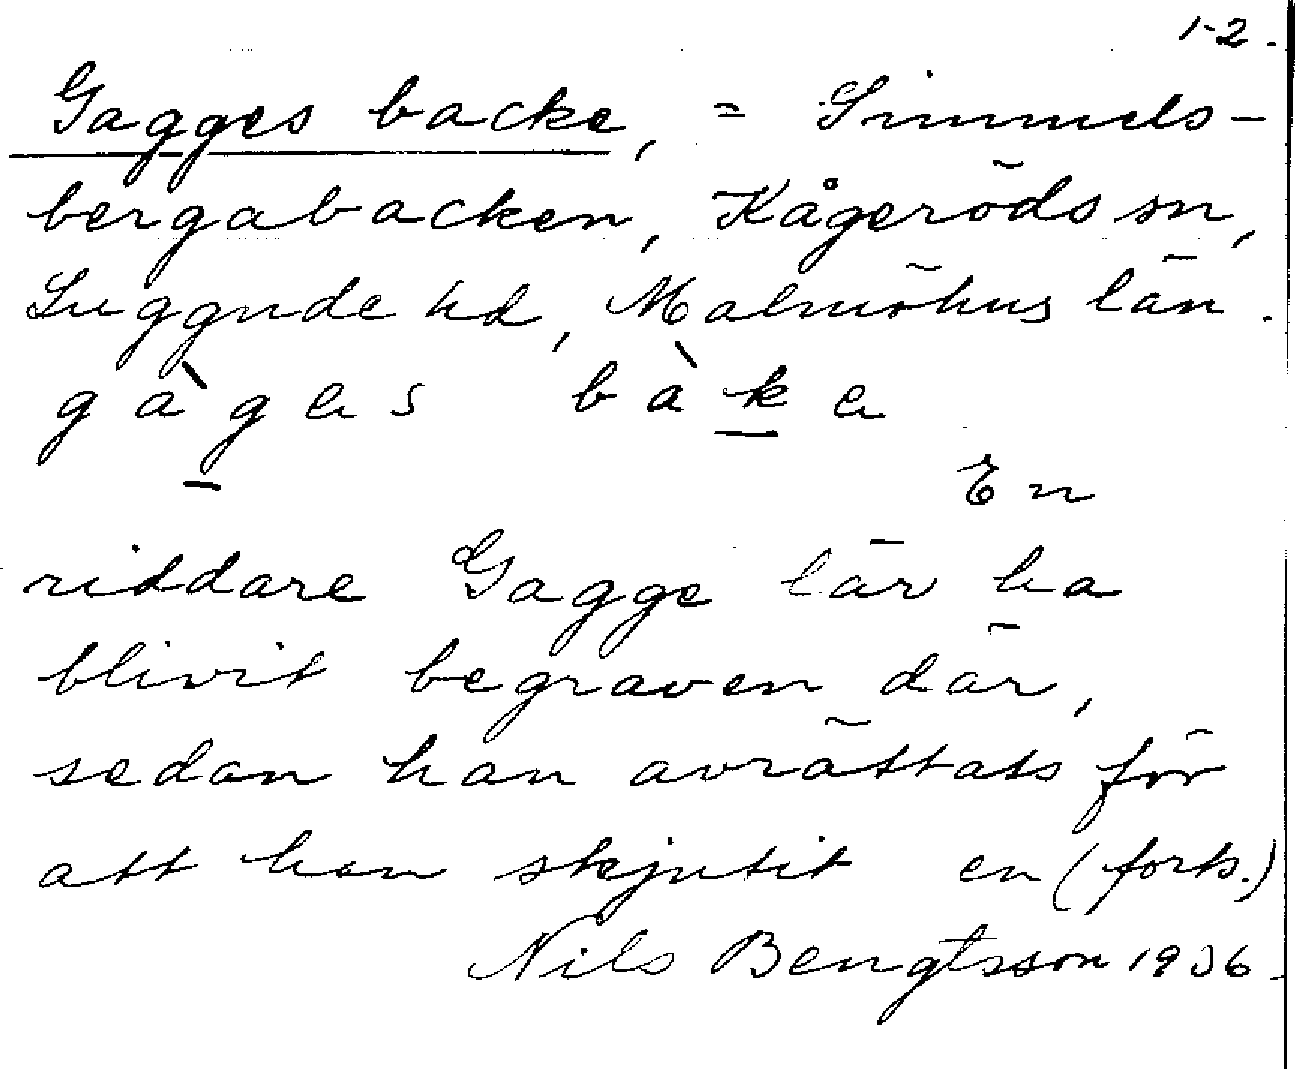 1-2.
Gagges backe, = Simmels-
bergabacken, Kågeröds sn,
Luggude hd, Malmöhus län.
gàgas bàka
En
riddare Gagge lär ha
blivit begraven där,
sedan han avrättats för
att han skjutit en (forts.)
Nils Bengtsson 1936.